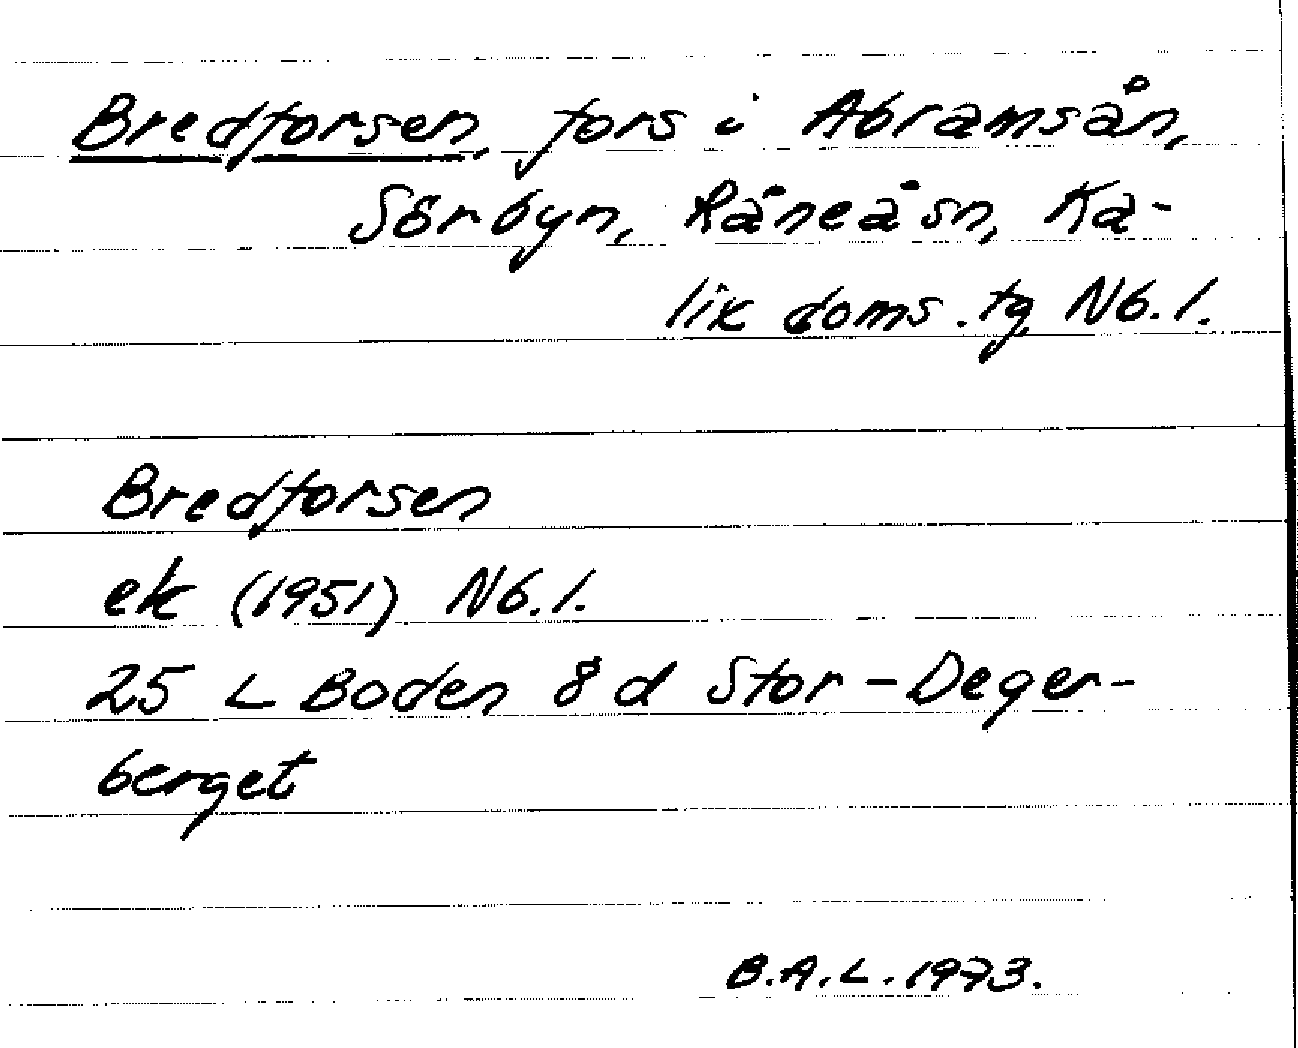 Bredforsen, fors i Abramsån,
Sörbyn, Råneå sn, Ka-
lix doms. tg Nb. l.
Bredforsen
ek (1951) Nb. l.
25 L Boden 8 d Stor-Deger-
berget
B.A.L. 1973.